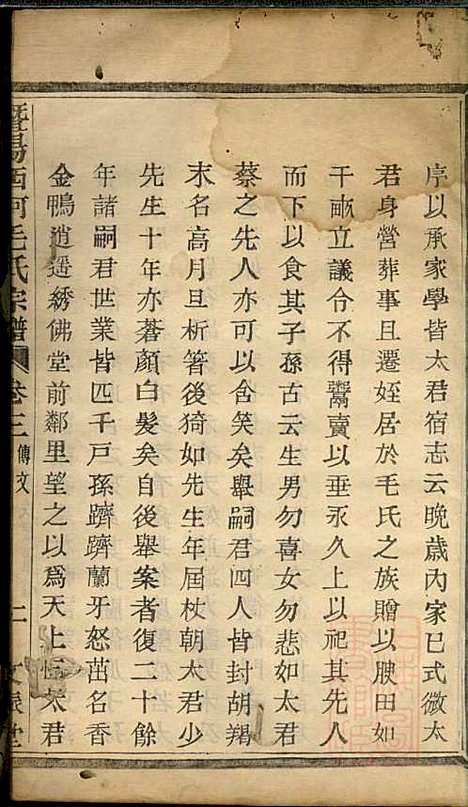 序以承家學皆太君宿志云晚歲內家已式微太
君身營葬事且遷姪居於毛氏之族贈以腴田如
干畝立議令不得鬻賣以垂永久上以祀其先人
而下以食其子孫古云生男勿喜女勿悲如太君
蔡之先人亦可以含笑矣舉嗣君四人皆封胡羯
末名高月旦析箸後猗如先生年屆杖朝太君少
先生十年亦蒼顏白髮矣自後舉案者復二十餘
年諸嗣君世業皆匹千戶孫躋躋蘭牙怒茁名香
金鴨逍遥綉佛堂前鄰里望之以爲天上恒太君
暨陽西河毛氏宗譜 卷三 傳文